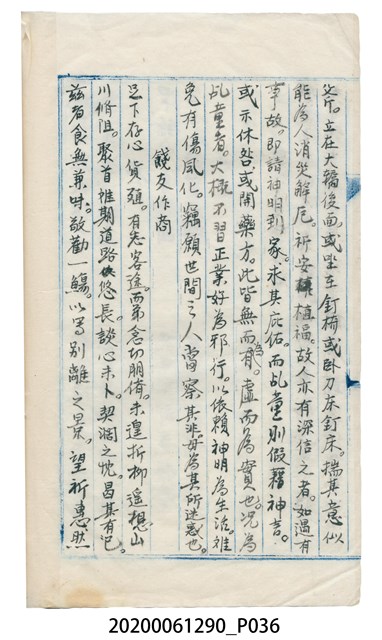 斧。立在大轎後面。或坐在釘椅或臥刀床釘床。揣其意似
能為人消災解厄。祈安植福。故人亦有深信之者。如遇有
事故。即請神明到家。求其庇佑。而乩童則假藉神言。
或示休咎或開藥方。此皆無而為有。虛而為實也。況為
乩童者。大概不習正業好為邪行。以依賴神明為生活。难
免有傷風化。竊願世間之人當察其非。毋為其所迷惑也。
餞友作商
足下存心貨殖。有志客途。而弟念切朋儕。未遑折柳遥想山
川脩阻。聚首誰期道路悠長。談心未卜。契濶之忱。曷其有已。
茲者食無兼味。敬勸一觴。以写别離之景。望祈惠然
20200061290_P036